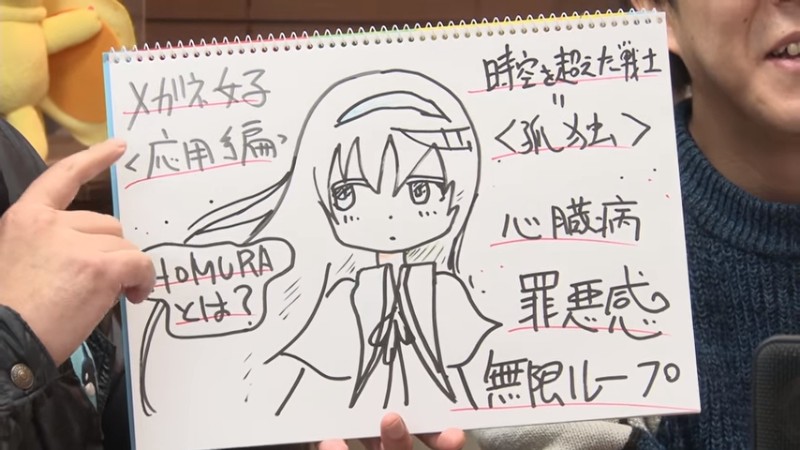 メガネ女子
<応用編>
HOMURA
とは?
時空を超えた戦士
=
<孤独>
心臓病
罪悪感
無限ループ